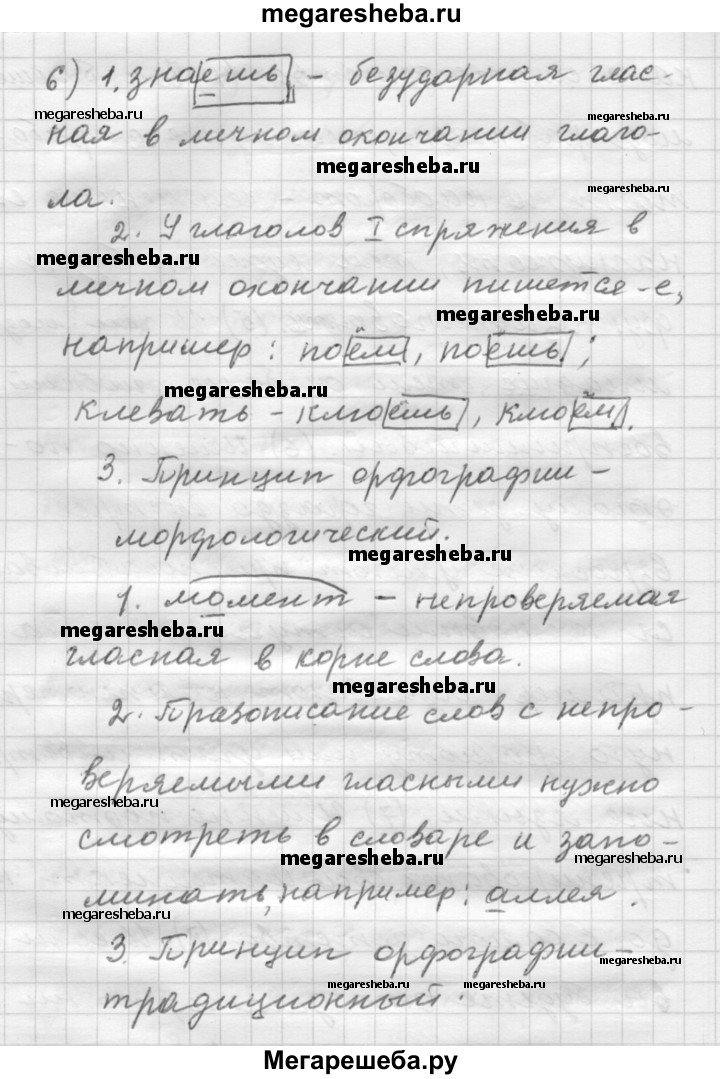 megaresheba.ru
6) 1. знаешь – безударная глас-
megaresheba.ru
megaresheba.ru
ная в личном окончании глаго-
megaresheba.ru
megaresheba.ru
ла.
2. У глаголов I спряжения в
megaresheba.ru
личном окончании пишется -е,
megaresheba.ru
например: поём, поёшь;
megaresheba.ru
клевать – клюёшь, клюём.
3. Принцип орфографии –
морфологический.
megaresheba.ru
1. момент – непроверяемая
megaresheba.ru
гласная в корне слова.
megaresheba.ru
2. Правописание слов с непро-
веряемыми гласными нужно
megaresheba.ru
смотреть в словаре и запо-
megaresheba.ru
megaresheba.ru
минать, например: аллея.
megaresheba.ru
3. Принцип орфографии –
megaresheba.ru
megaresheba.ru
megaresheba.ru
традиционный.
Мегарешеба.ру